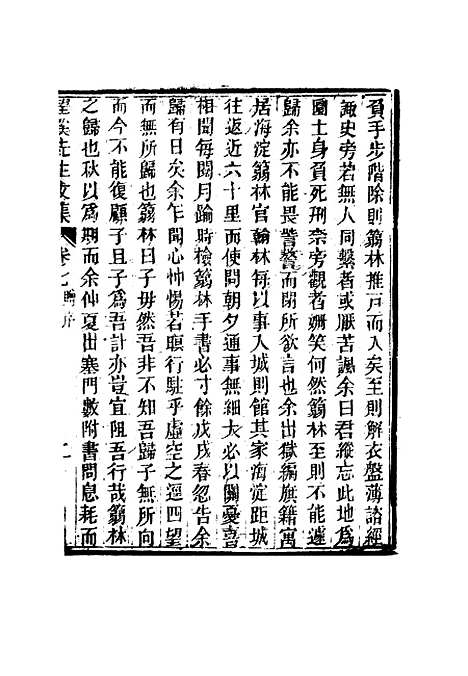 負手步階除則蒻林推戶而入矣至則解衣盤薄諮經
諏史旁若無人同繫者或厭苦諷余曰君縱忘此地爲
圜土身負死刑柰旁觀者姍笑何然蒻林至則不能遽
歸余亦不能畏訾謷而閉所欲言也余出獄編旗籍寓
居海淀蒻林官翰林每以事入城則館其家海淀距城
往返近六十里而使問朝夕通事無細大必以關憂喜
相聞每閱月踰時檢蒻林手書必寸餘戊戌春忽告余
歸有日矣余乍聞心忡惕若暝行駐乎虛空之逕四望
而無所歸也蒻林曰子毋然吾非不知吾歸子無所向
而今不能復顧子且子爲吾計亦豈宜阻吾行哉蒻林
之歸也秋以爲期而余仲夏出塞門數附書問息耗而
望溪先生文集 卷七贈序 二